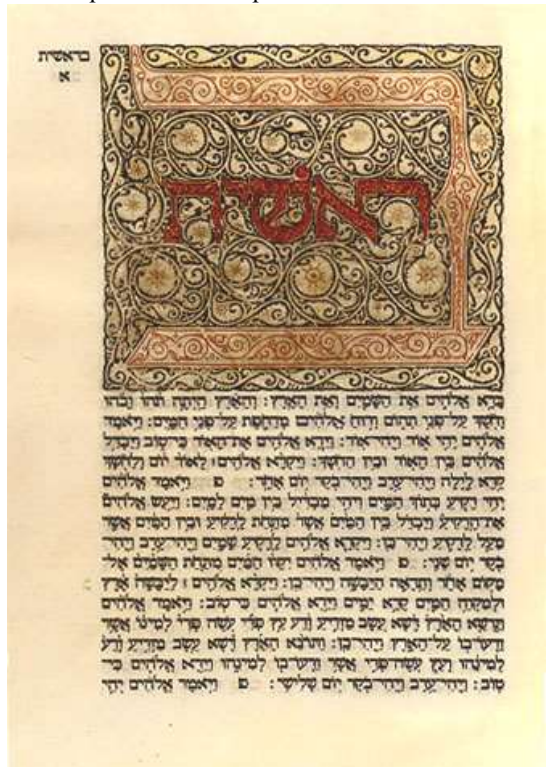 בראשית
א
בראשית
בָּרָא אֱלֹהִים אֵת הַשָּׁמַיִם וְאֵת הָאָרֶץ׃ וְהָאָרֶץ הָיְתָה תֹהוּ וָבֹהוּ
וְחֹשֶׁךְ עַל־פְּנֵי תְהוֹם וְרוּחַ אֱלֹהִים מְרַחֶפֶת עַל־פְּנֵי הַמָּיִם׃ וַיֹּאמֶר
אֱלֹהִים יְהִי אוֹר וַיְהִי־אוֹר׃ וַיַּרְא אֱלֹהִים אֶת־הָאוֹר כִּי־טוֹב וַיַּבְדֵּל
אֱלֹהִים בֵּין הָאוֹר וּבֵין הַחֹשֶׁךְ׃ וַיִּקְרָא אֱלֹהִים׀ לָאוֹר יוֹם וְלַחֹשֶׁךְ
קָרָא לָיְלָה וַיְהִי־עֶרֶב וַיְהִי־בֹקֶר יוֹם אֶחָד׃ פ וַיֹּאמֶר אֱלֹהִים
יְהִי רָקִיעַ בְּתוֹךְ הַמָּיִם וִיהִי מַבְדִּיל בֵּין מַיִם לָמָיִם׃ וַיַּעַשׂ אֱלֹהִים
אֶת־הָרָקִיעַ וַיַּבְדֵּל בֵּין הַמַּיִם אֲשֶׁר מִתַּחַת לָרָקִיעַ וּבֵין הַמַּיִם אֲשֶׁר
מֵעַל לָרָקִיעַ וַיְהִי־כֵן׃ וַיִּקְרָא אֱלֹהִים לָרָקִיעַ שָׁמָיִם וַיְהִי־עֶרֶב וַיְהִי־
בֹקֶר יוֹם שֵׁנִי׃ פ וַיֹּאמֶר אֱלֹהִים יִקָּווּ הַמַּיִם מִתַּחַת הַשָּׁמַיִם אֶל־
מָקוֹם אֶחָד וְתֵרָאֶה הַיַּבָּשָׁה וַיְהִי־כֵן׃ וַיִּקְרָא אֱלֹהִים׀ לַיַּבָּשָׁה אֶרֶץ
וּלְמִקְוֵה הַמַּיִם קָרָא יַמִּים וַיַּרְא אֱלֹהִים כִּי־טוֹב׃ וַיֹּאמֶר אֱלֹהִים
תַּדְשֵׁא הָאָרֶץ דֶּשֶׁא עֵשֶׂב מַזְרִיעַ זֶרַע עֵץ פְּרִי עֹשֶׂה פְּרִי לְמִינוֹ אֲשֶׁר
זַרְעוֹ־בוֹ עַל־הָאָרֶץ וַיְהִי־כֵן׃ וַתּוֹצֵא הָאָרֶץ דֶּשֶׁא עֵשֶׂב מַזְרִיעַ זֶרַע
לְמִינֵהוּ וְעֵץ עֹשֶׂה־פְּרִי אֲשֶׁר זַרְעוֹ־בוֹ לְמִינֵהוּ וַיַּרְא אֱלֹהִים כִּי־
טוֹב׃ וַיְהִי־עֶרֶב וַיְהִי־בֹקֶר יוֹם שְׁלִישִׁי׃ פ וַיֹּאמֶר אֱלֹהִים יְהִי